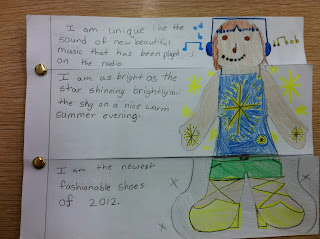 I am unique like the
sound of new beautiful
music that has been played
on the radio.
I am as bright as the
star shineing brightly in
the sky on a nice warm
summer evening.
I am the newest
fashionable shoes
of 2012.